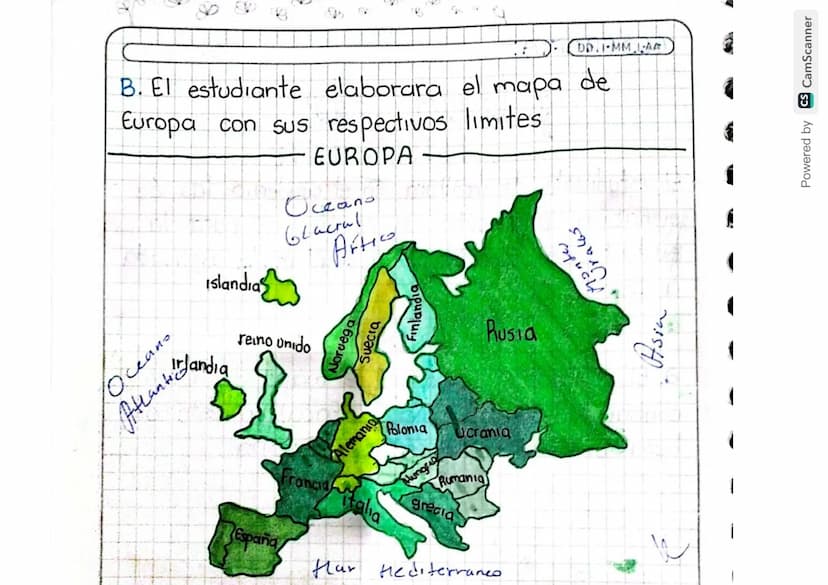 DD. I.MM. I.AA
B. El estudiante elaborara el mapa de
Europa con sus respectivos limites
EUROPA
Oceano
Glacial
Artico
Montes
Urales
Islandia
Noruega
Suecia
Finlandia
Rusia
Asia
Oceano
Atlantico
reino unido
Irlandia
Alemania
Polonia
Ucrania
Francia
Hungria
Rumania
Italia
grecia
España
Mar Mediterraneo
Powered by CS CamScanner